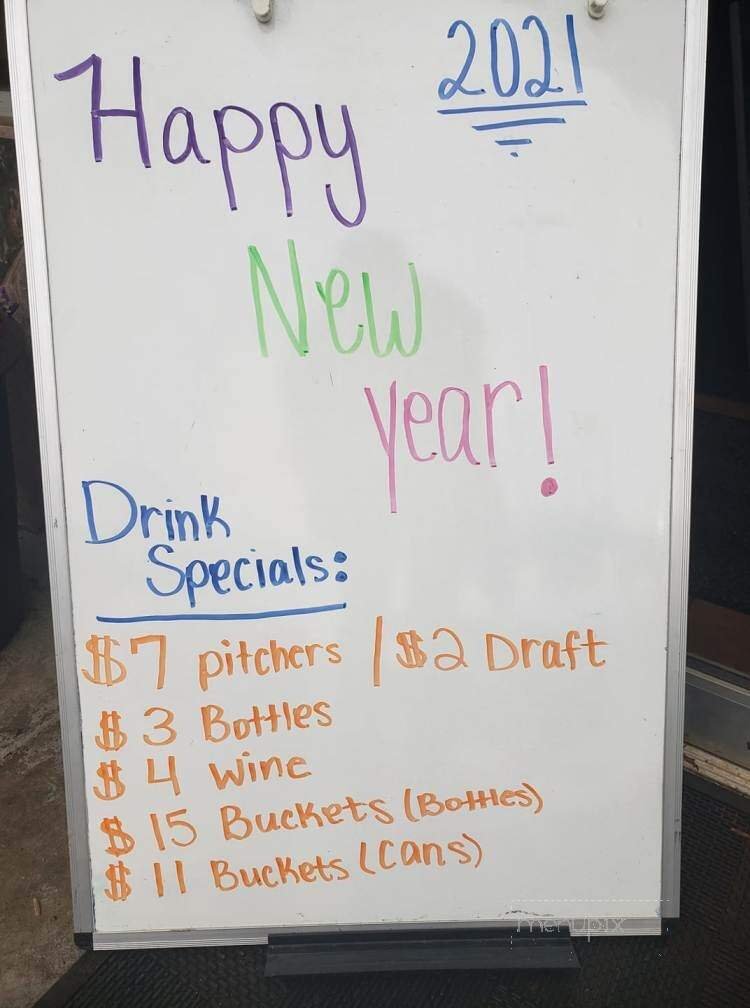 2021
Happy
New
year!
Drink
Specials:
$7 pitchers / $2 Draft
$3 Bottles
$4 Wine
$15 Buckets (Bottles)
$11 Buckets (Cans)
menupix